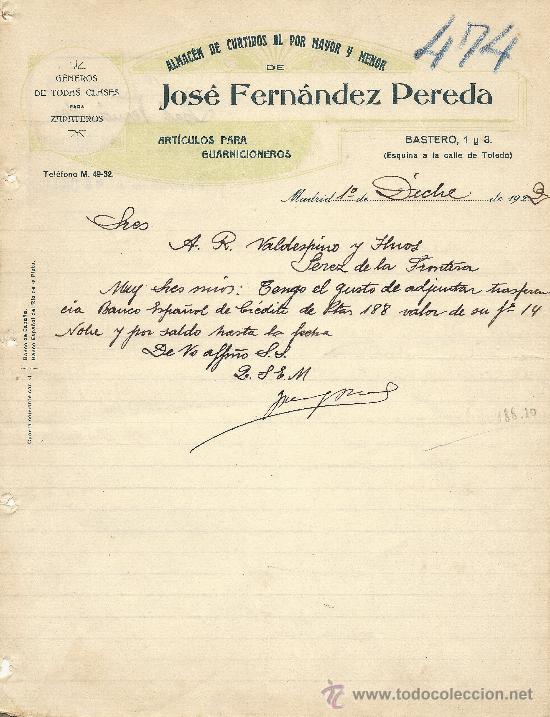 474
ALMACÉN DE CURTIDOS AL POR MAYOR Y MENOR
DE
José Fernández Pereda
GÉNEROS
DE TODAS CLASES
PARA
ZAPATEROS
ARTÍCULOS PARA
GUARNICIONEROS
BASTERO, 1 y 3.
(Esquina a la calle de Toledo)
Teléfono M. 49-32.
Madrid 1º de Dicbre de 192
Sres
A. R. Valdespino y Hnos
Jerez de la Frontera
Muy Sres mios: Tengo el gusto de adjuntar trasfren
cia Banco Español de Crédito de Ptas 188 valor de su fra 14
Nobre y por saldo hasta la fecha
De Vs affmo S. S.
Q. S. E. M
188.20
Banco de España.
Banco Español del Río de la Plata.
www.todocoleccion.net